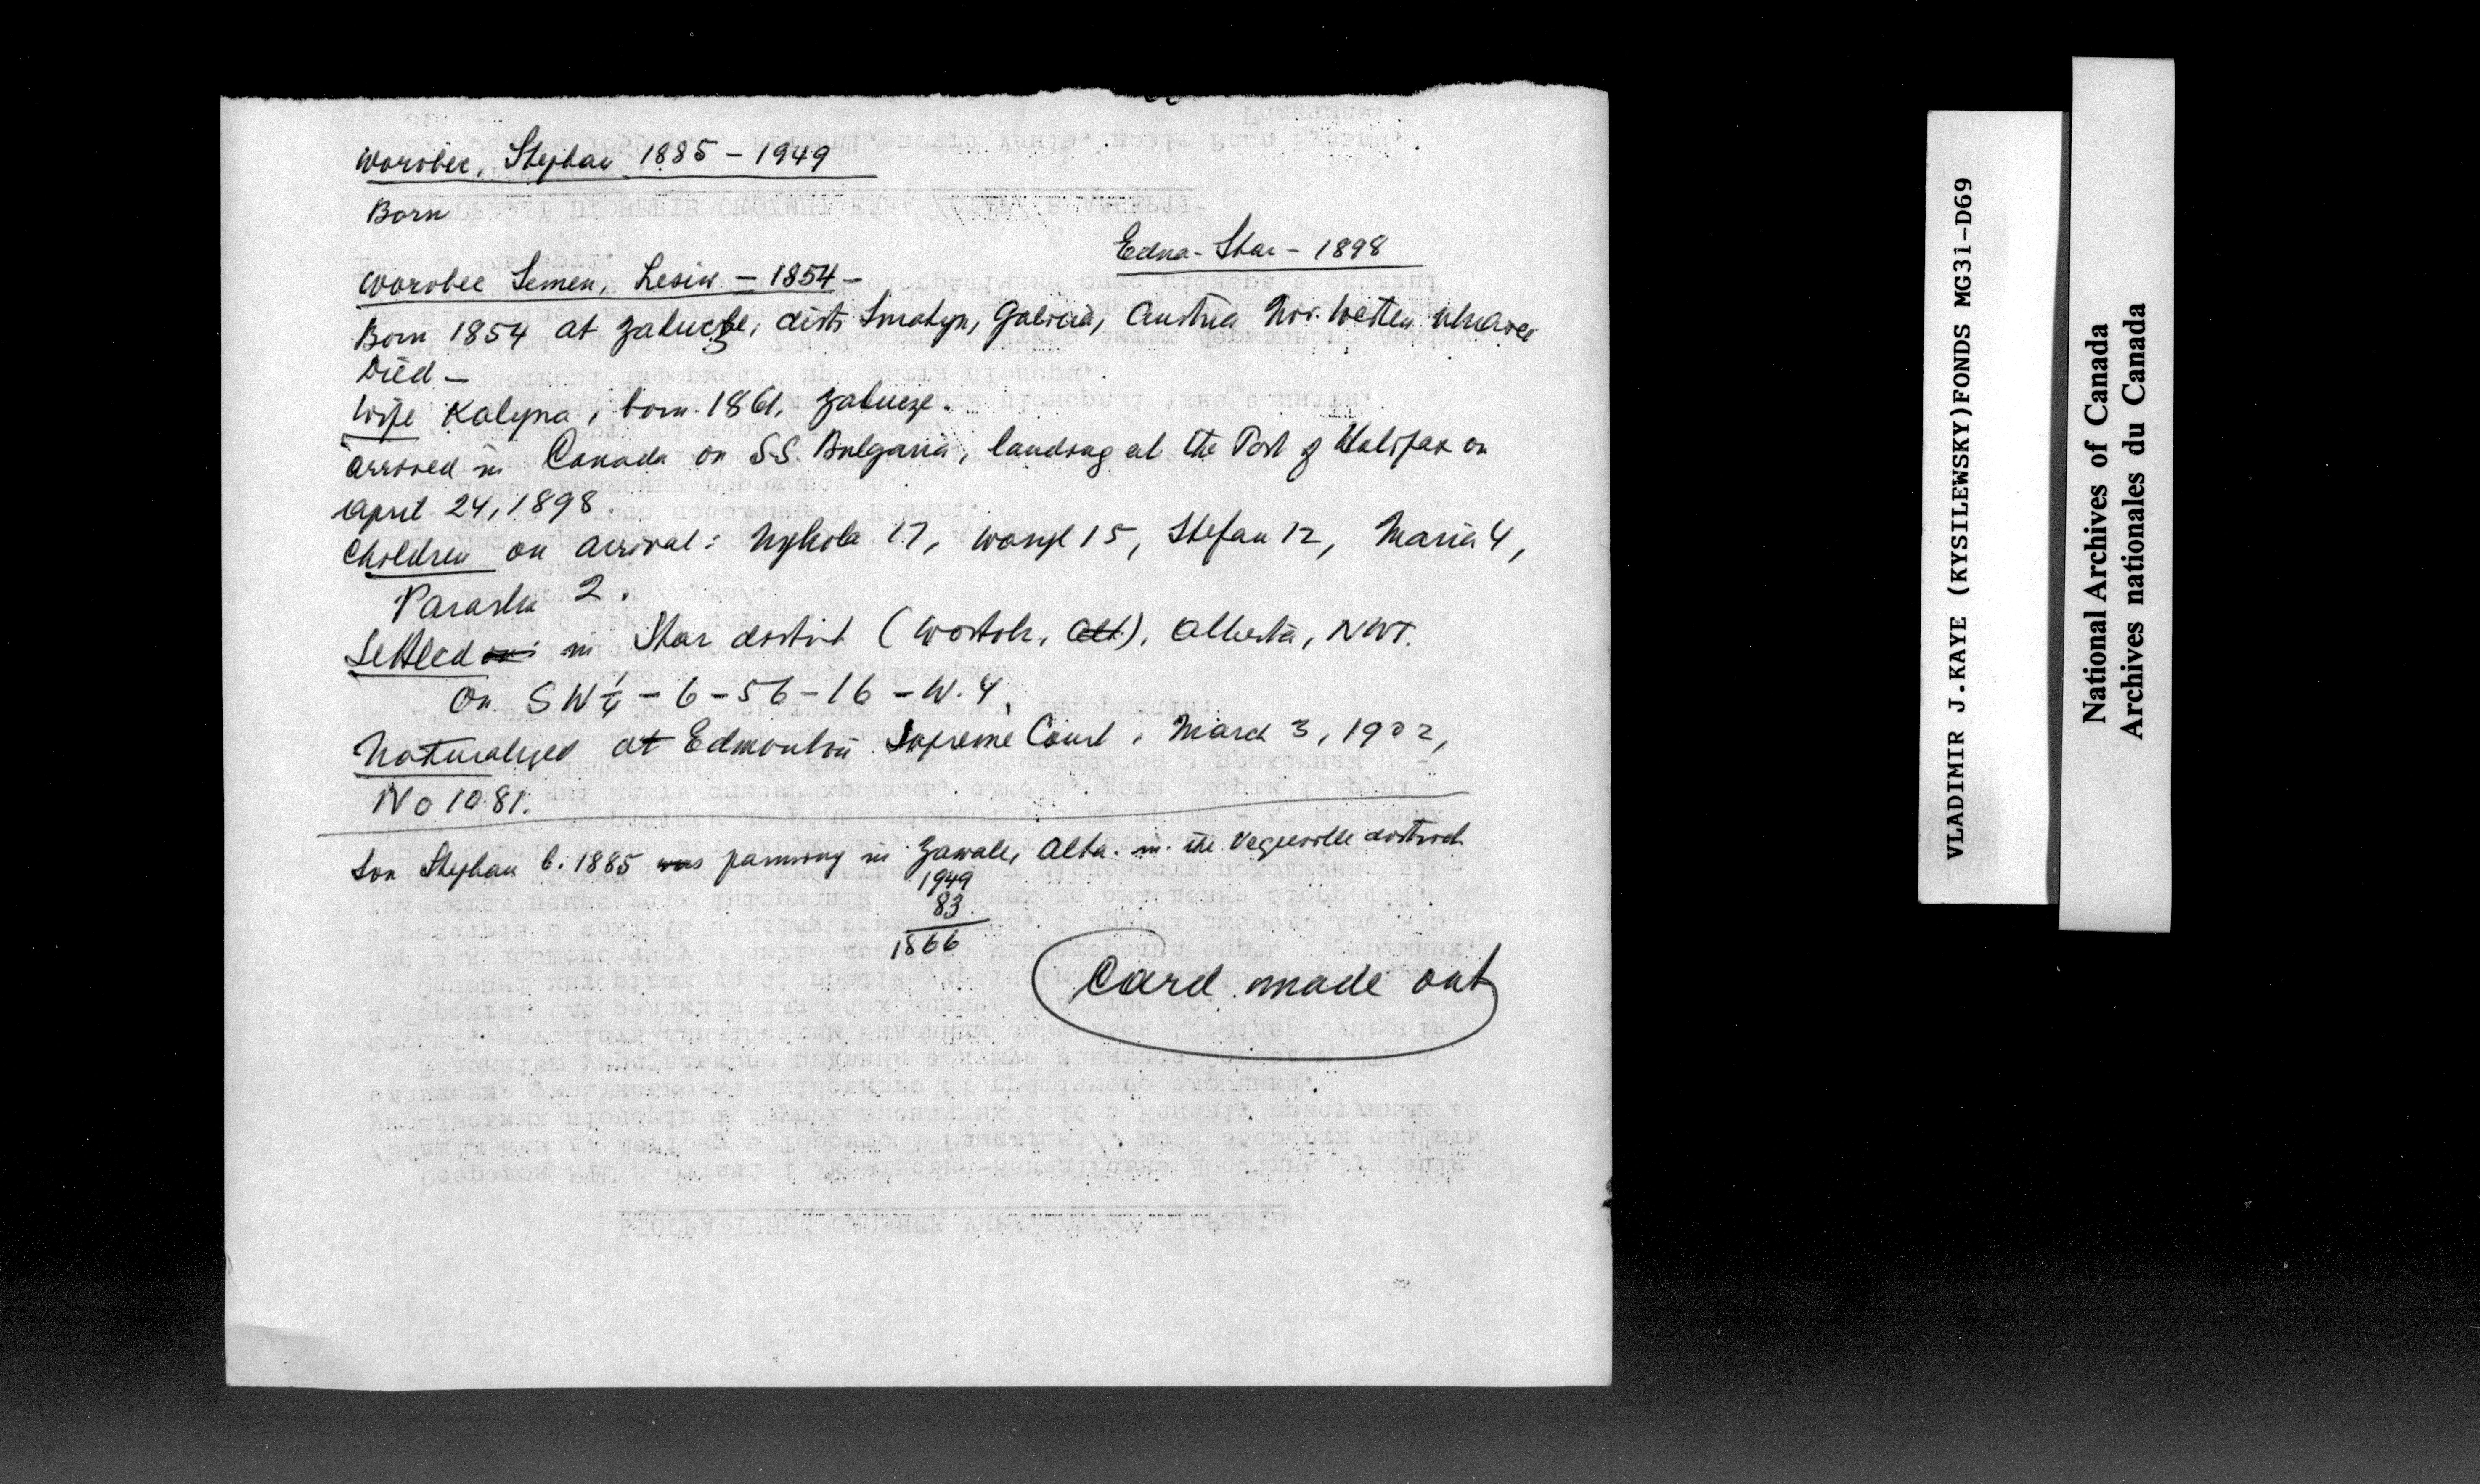 Worobec, Stephan 1885 – 1949
Born
Edna-Star – 1898
Worobec Semen, Lesiw – 1854 –
Born 1854 at Zalucze, distr Sniatyn, Galicia, Austria Nov.
Died –
Wife Kalyna, born 1861, Zalucze.
arrived in Canada on S.S. Bulgaria, landing at the Port of Halifax on
April 24, 1898.
Children on arrival: Mykola 17, Wasyl 15, Stefan 12, Maria 4,
Paraska 2.
Settled in Star district (Wostok, Alt), Alberta, NWT.
On SW¼ – 6 – 56 – 16 – W. 4.
Naturalized at Edmonton Supreme Court, March 3, 1902,
No 1081.
Son Stephan b. 1885 was farming in Zawale, Alta. in the Vegreville district
1949
83
1866
Card made out
VLADIMIR J.KAYE (KYSILEWSKY)FONDS MG31-D69
National Archives of Canada
Archives nationales du Canada